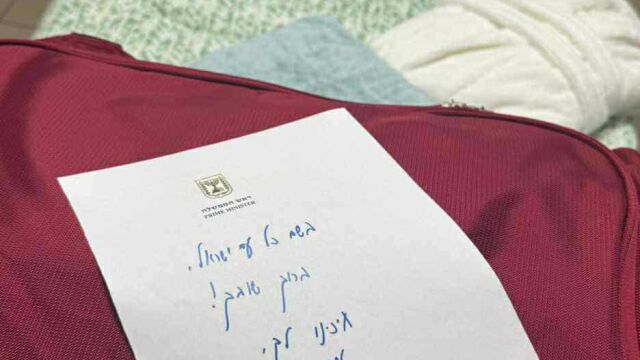 ראש הממשלה
PRIME MINISTER
בשם כל עם ישראל,
ברוך שובך!
חיכינו לך,